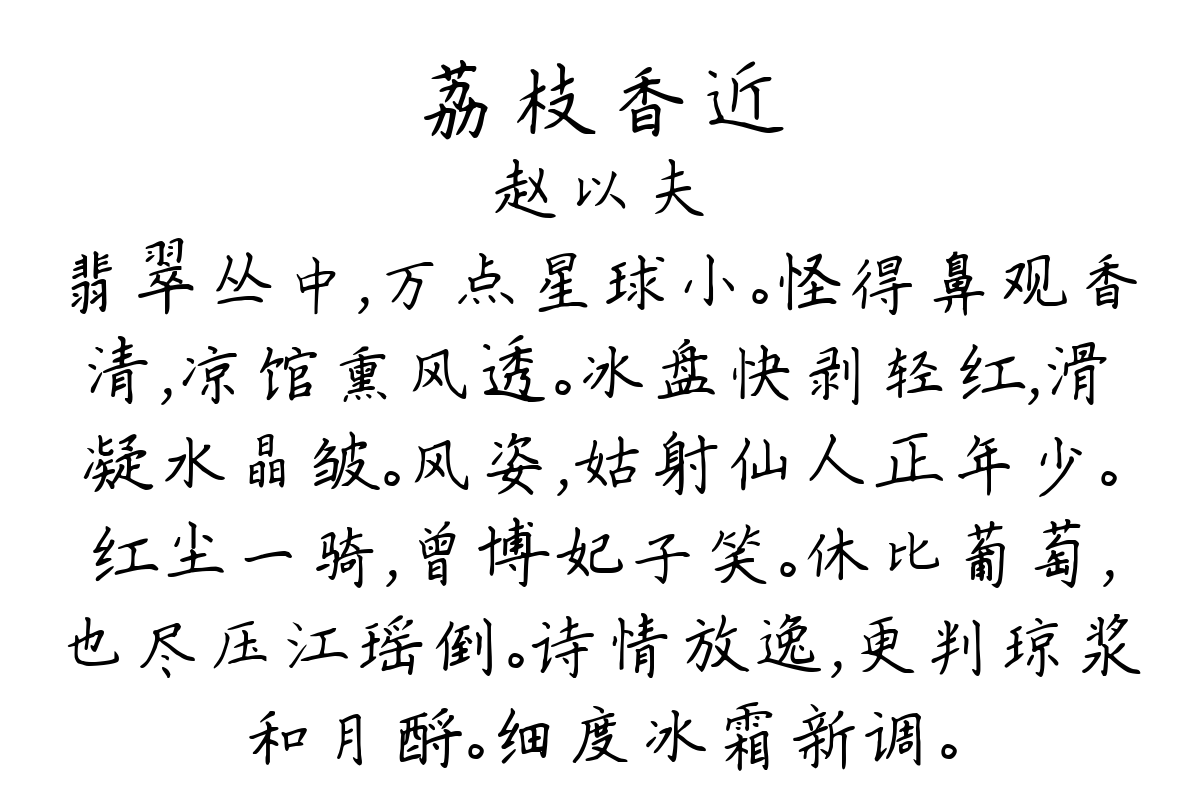 荔枝香近
赵以夫
翡翠丛中,万点星球小。怪得鼻观香
清,凉馆熏风透。冰盘快剥轻红,滑
凝水晶皱。风姿,姑射仙人正年少。
红尘一骑,曾博妃子笑。休比葡萄,
也尽压江瑶倒。诗情放逸,更判琼浆
和月酹。细度冰霜新调。